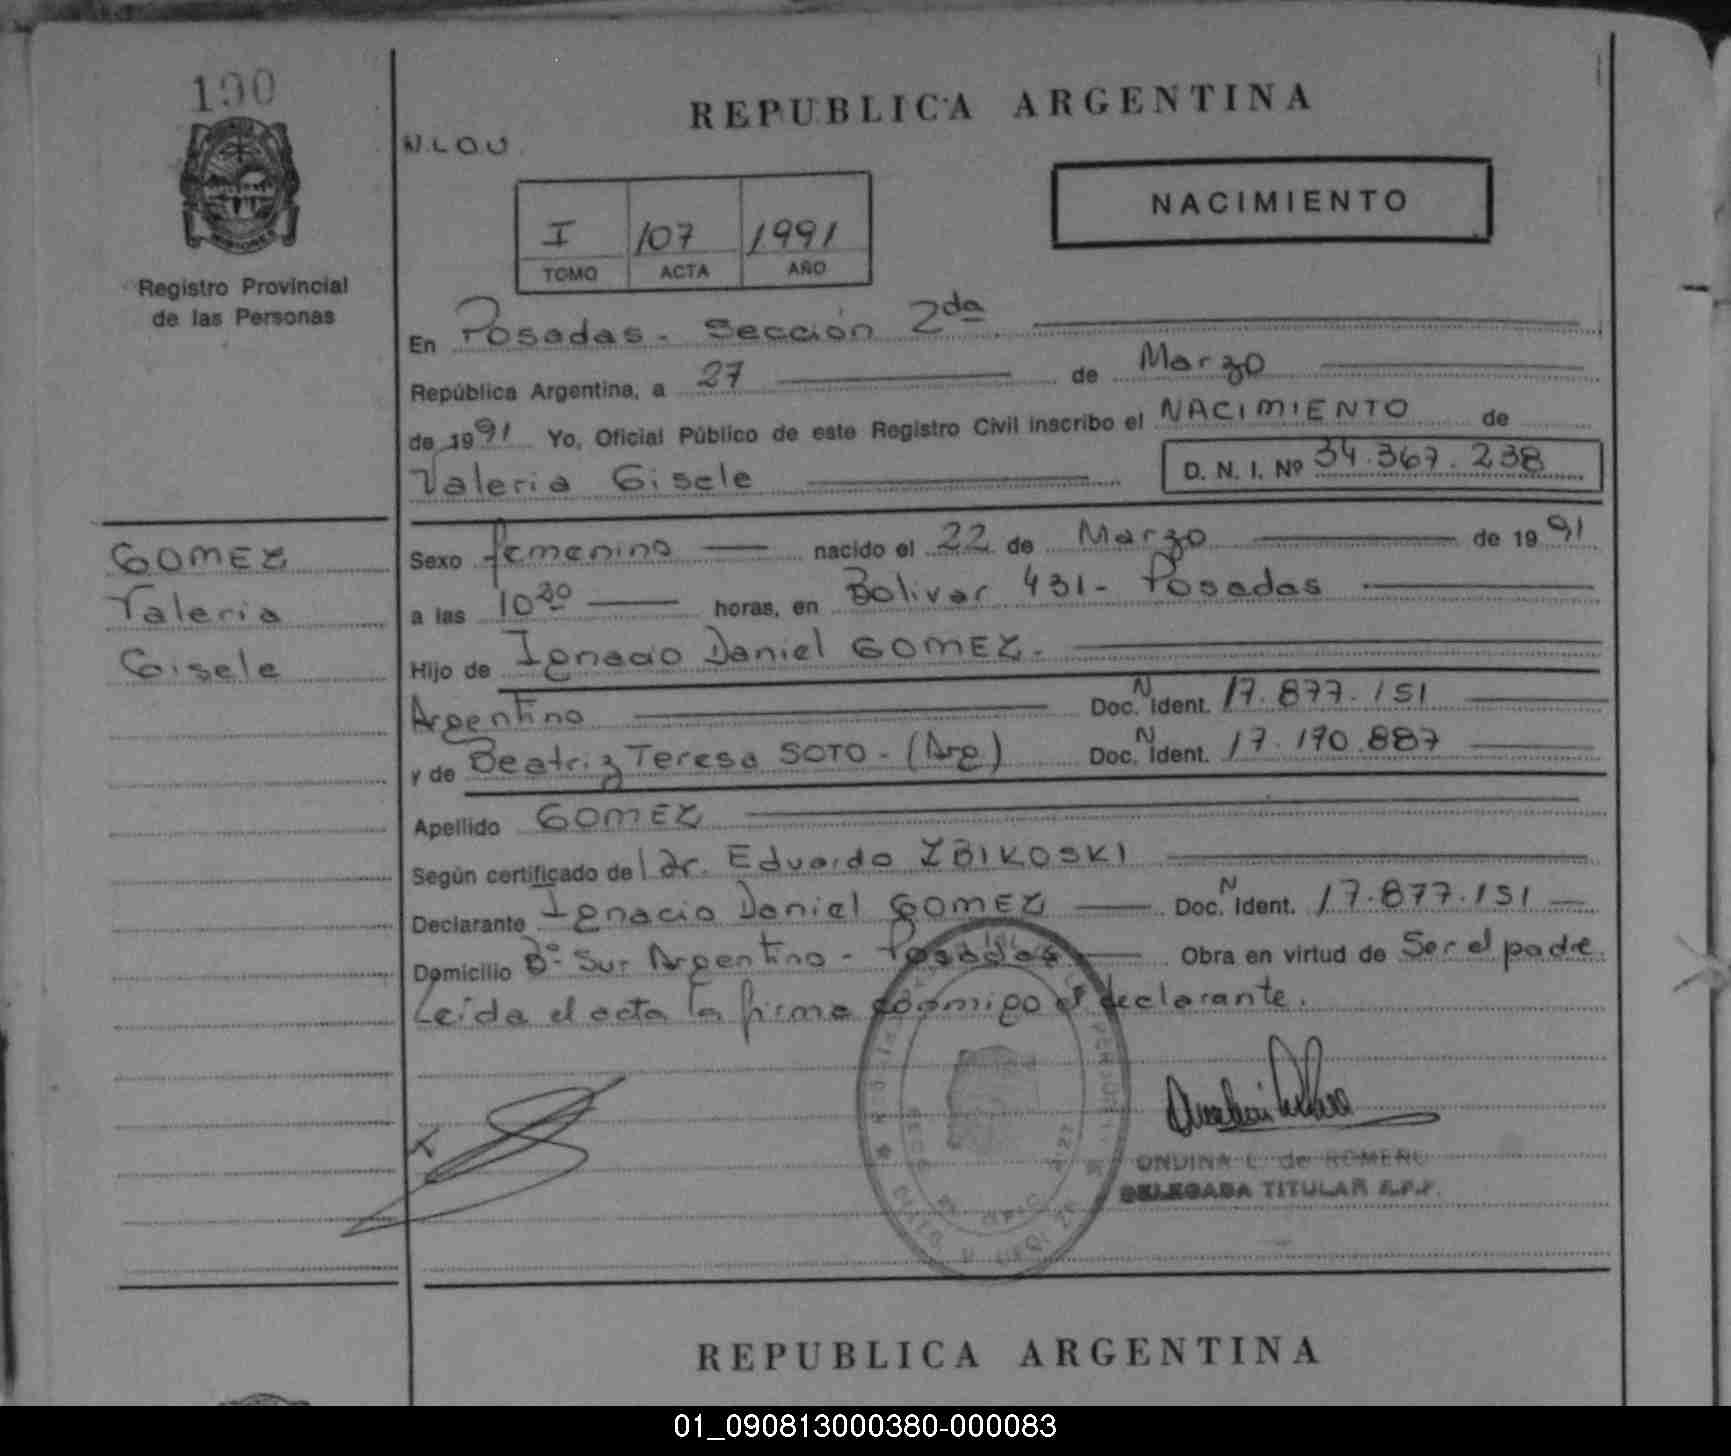 100
REPUBLICA ARGENTINA
N.L.O.U.
NACIMIENTO
I 107 1991
TOMO ACTA AÑO
Registro Provincial
de las Personas
En Posadas - Sección 2da
República Argentina, a 27 de Marzo
de 1991 Yo, Oficial Público de este Registro Civil inscribo el NACIMIENTO de
Valeria Gisele D. N. I. Nº 34.367.238
GOMEZ
Valeria
Gisele
Sexo femenino nacido el 22 de Marzo de 1991
a las 10 30 horas, en Bolivar 431 - Posadas
Hijo de Ignacio Daniel GOMEZ.-
Argentino Doc. N Ident. 17.877.151
y de Beatriz Teresa SOTO - (Arg) Doc. N Ident. 17.190.887
Apellido GOMEZ
Según certificado del dr. Eduardo ZBIKOSKI
Declarante Ignacio Daniel GOMEZ Doc. N Ident. 17.877.151
Domicilio Bº Sur Argentino - Posadas Obra en virtud de Ser el padre.
Leída el acta la firma conmigo el declarante.
ONDINA L. de ROMERO
DELEGADA TITULAR R.P.P.
REPUBLICA ARGENTINA
01_090813000380-000083